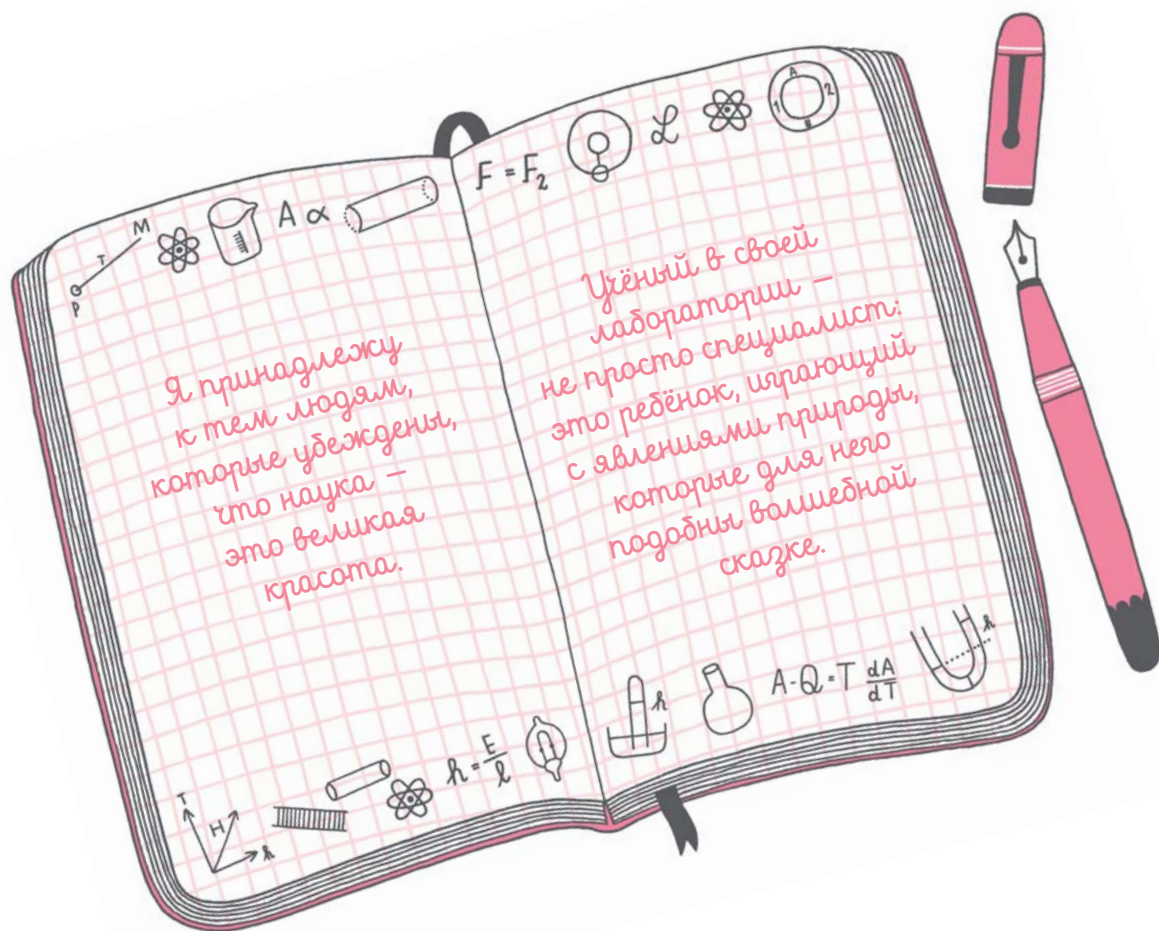 M
T
P
A ∝
Я принадлежу
к тем людям,
которые убеждены,
что наука –
это великая
красота.
T
H
h
h = E/l
F = F₂
L
A
1 2
Учёный в своей
лаборатории –
не просто специалист:
это ребёнок, играющий
с явлениями природы,
которые для него
подобны волшебной
сказке.
h
A-Q=T dA/dT
h